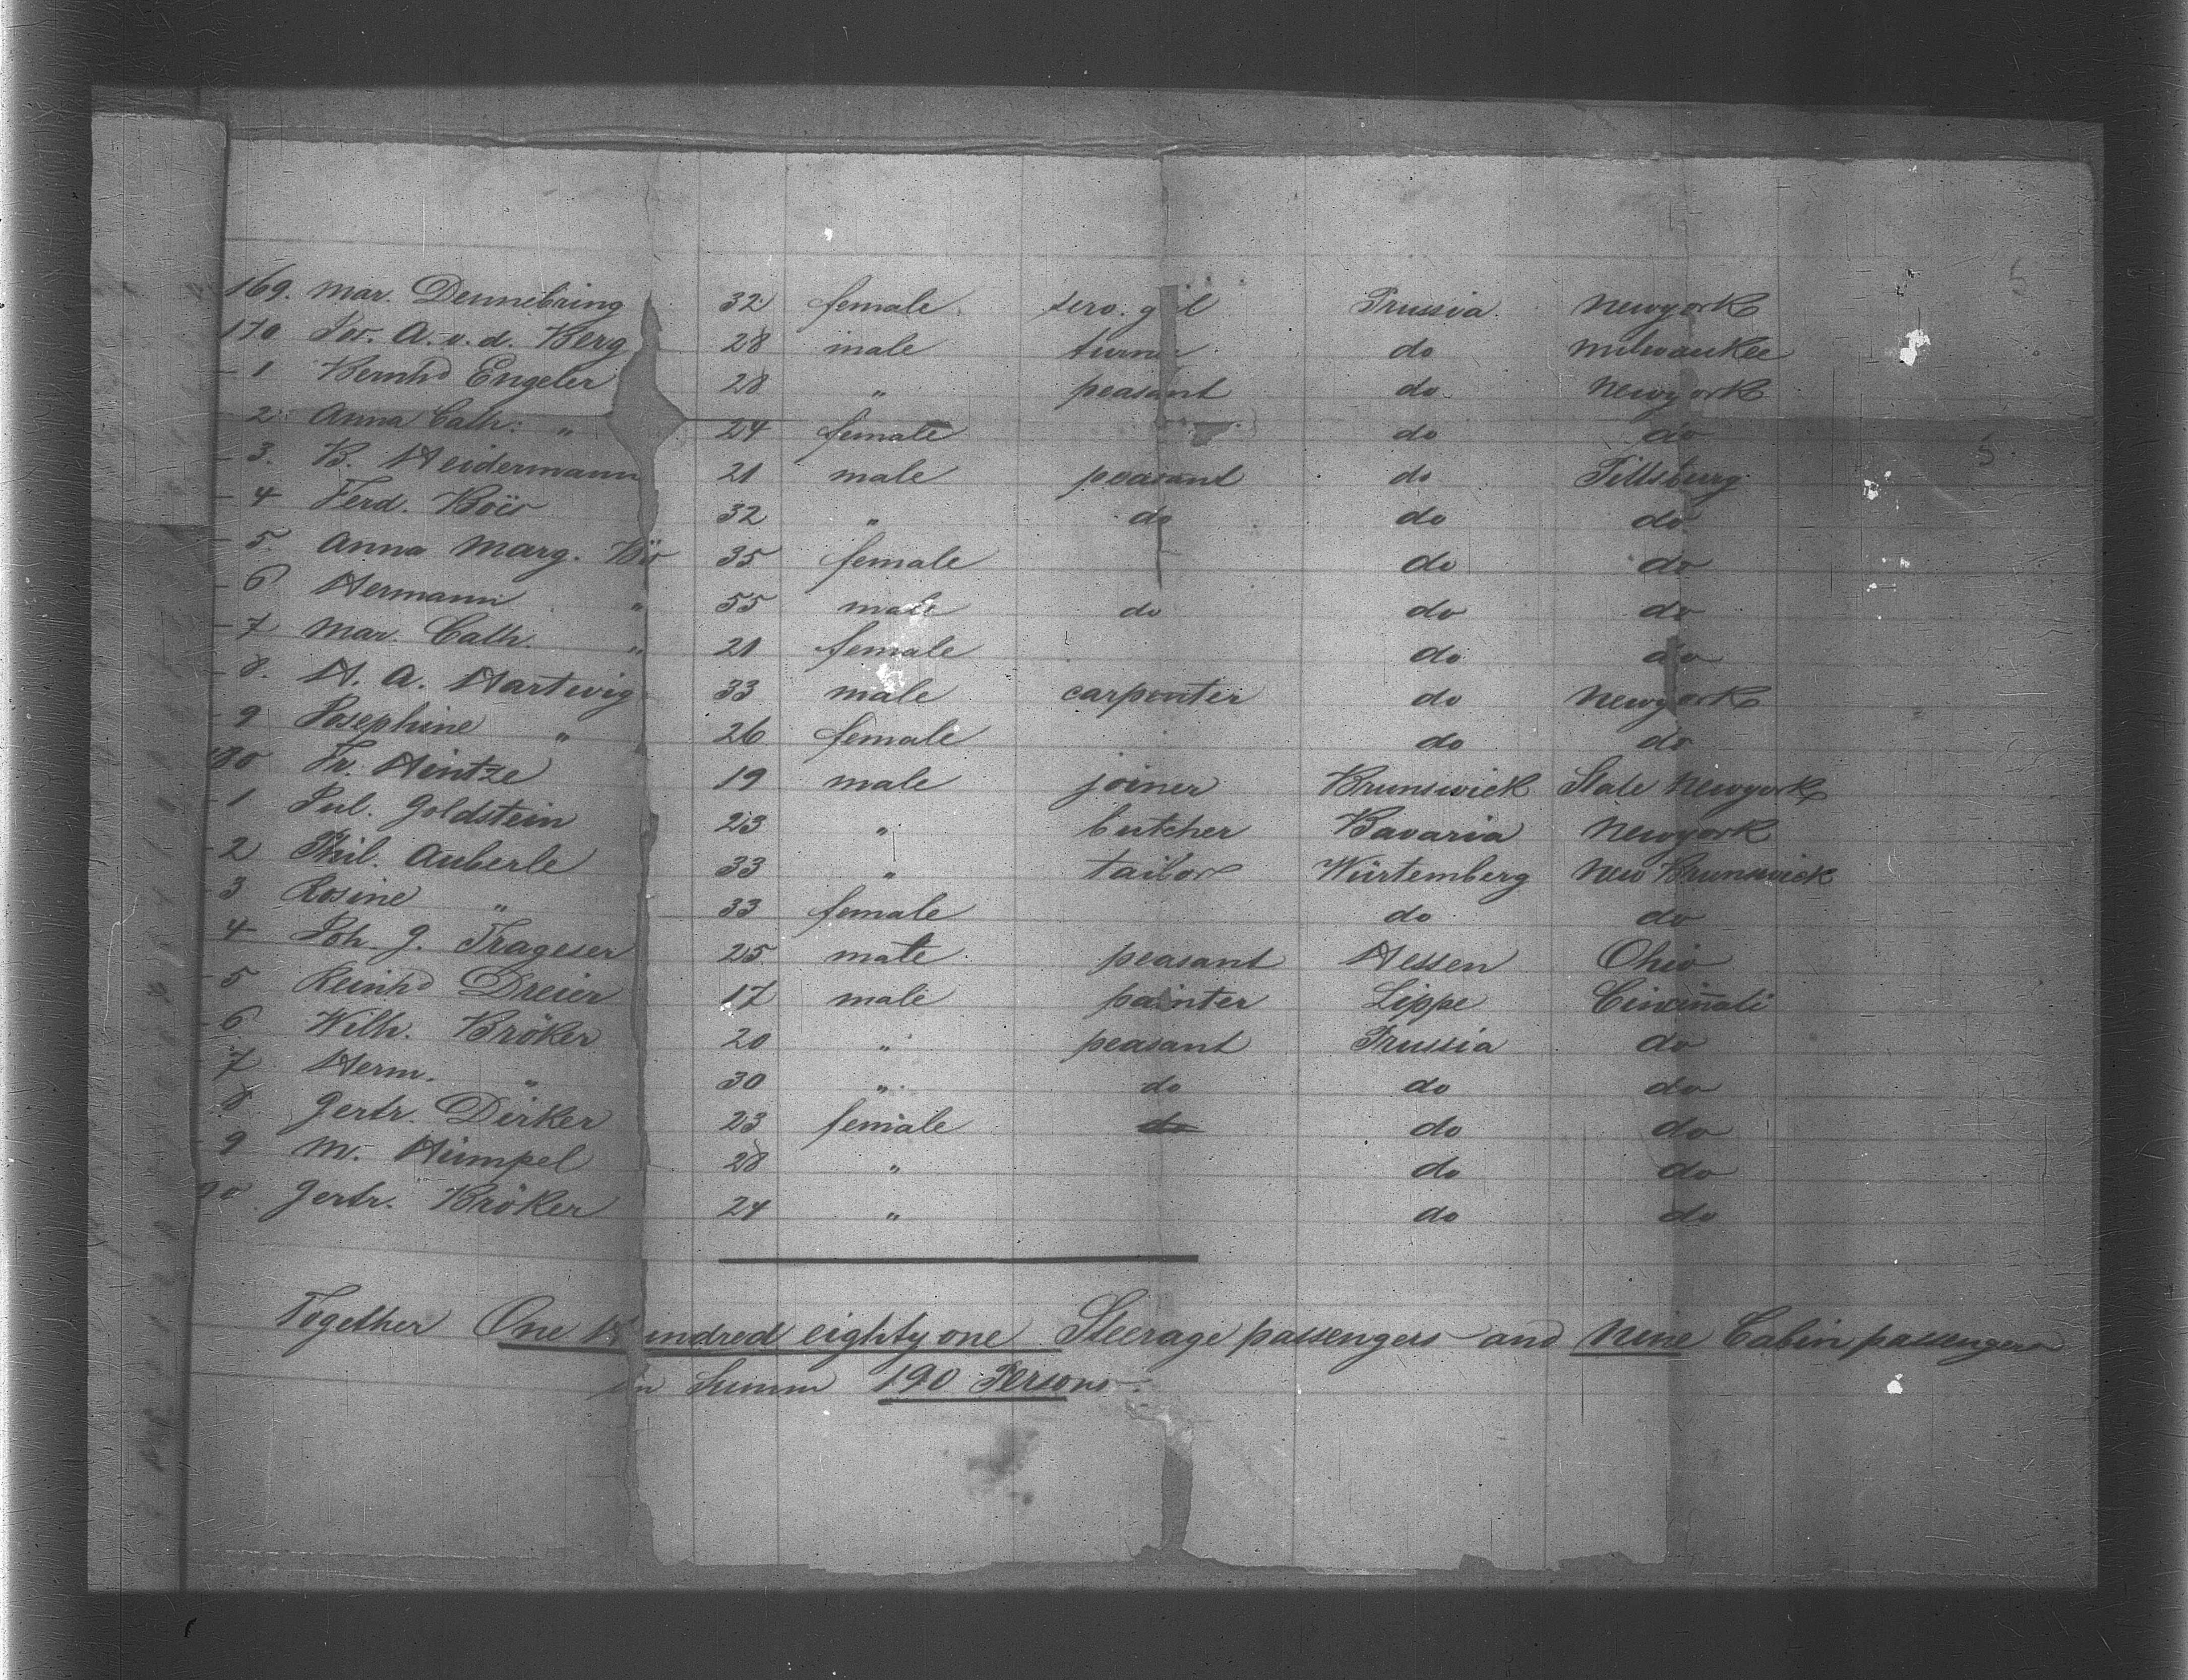 169. Mar. Dennebring 32 female serv. gil Prussia Newyork
170 Jos. A. v. d. Berg 28 male turner do Milwaukee
1 Bernhd Engeler 28 " peasant do Newyork
2 Anna Cath: " 24 female do do
3. B. Heidermann 21 male peasant do Pittsburg
4 Ferd. Böcs 32 " do do do
5. Anna Marg. 35 female do do
6 Hermann " 55 male do do do
7 Mar. Cath. " 21 female do do
8. H. A. Hartwig 33 male carpenter do Newyork
9 Josephine " 26 female do do
180 Fr. Hintze 19 male joiner Brunswick State Newyork
1 Jul. Goldstein 23 " butcher Bavaria Newyork
2 Phil. Auberle 33 " tailor Würtemberg New Brunswick
3 Rosine " 33 female do do
4 Joh. G. Trageser 25 male peasant Hessen Ohio
5 Reinhd Dreier 17 male painter Lippe Cincinnati
6 Wilh. Bröker 20 " peasant Prussia do
7 Herm. " 30 " do do do
8 Gertr. Dirker 23 female do do do
9 M. Hümpel 28 " do do
90 Gertr. Bröker 24 " do do
Together One Hundred eighty one Steerage passengers and Nine Cabin passengers
in Summ 190 Persons.